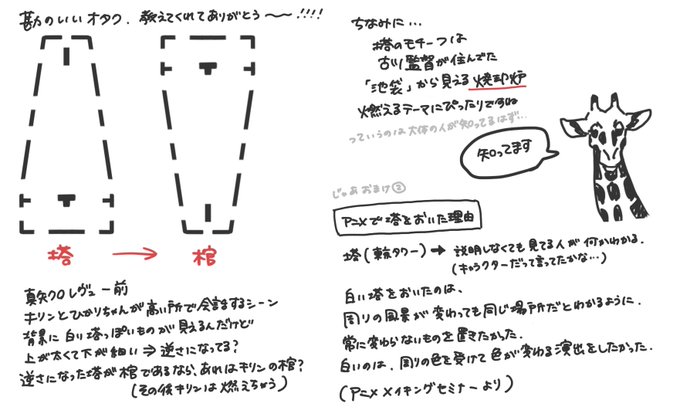 勘のいいオタク、教えてくれてありがとう〜〜!!!!
塔 → 棺
真矢クロレヴュー前
キリンとひかりちゃんが高い所で会話するシーン
背景に白い塔っぽいものが見えるんだけど
上が太くて下が細い ⇒ 逆さになってる?
逆さになった塔が棺であるなら、あれはキリンの棺?
(その後キリンは燃えちゃう)
ちなみに…
塔のモチーフは
古川監督が住んでた
「池袋」から見える焼却炉
燃えるテーマにぴったりですね
っていうのは大体の人が知ってるはず…
知ってます
じゃあおまけ②
アニメで塔をおいた理由
塔(東京タワー) → 説明しなくても見てる人が何かわかる。
(キャラクターだって言ってたかな…)
白い塔をおいたのは、
周りの風景が変わっても同じ場所だとわかるように。
常に変わらないものを置きたかった。
白いのは、周りの色を受けて色が変わる演出をしたかった。
(アニメメイキングセミナーより)